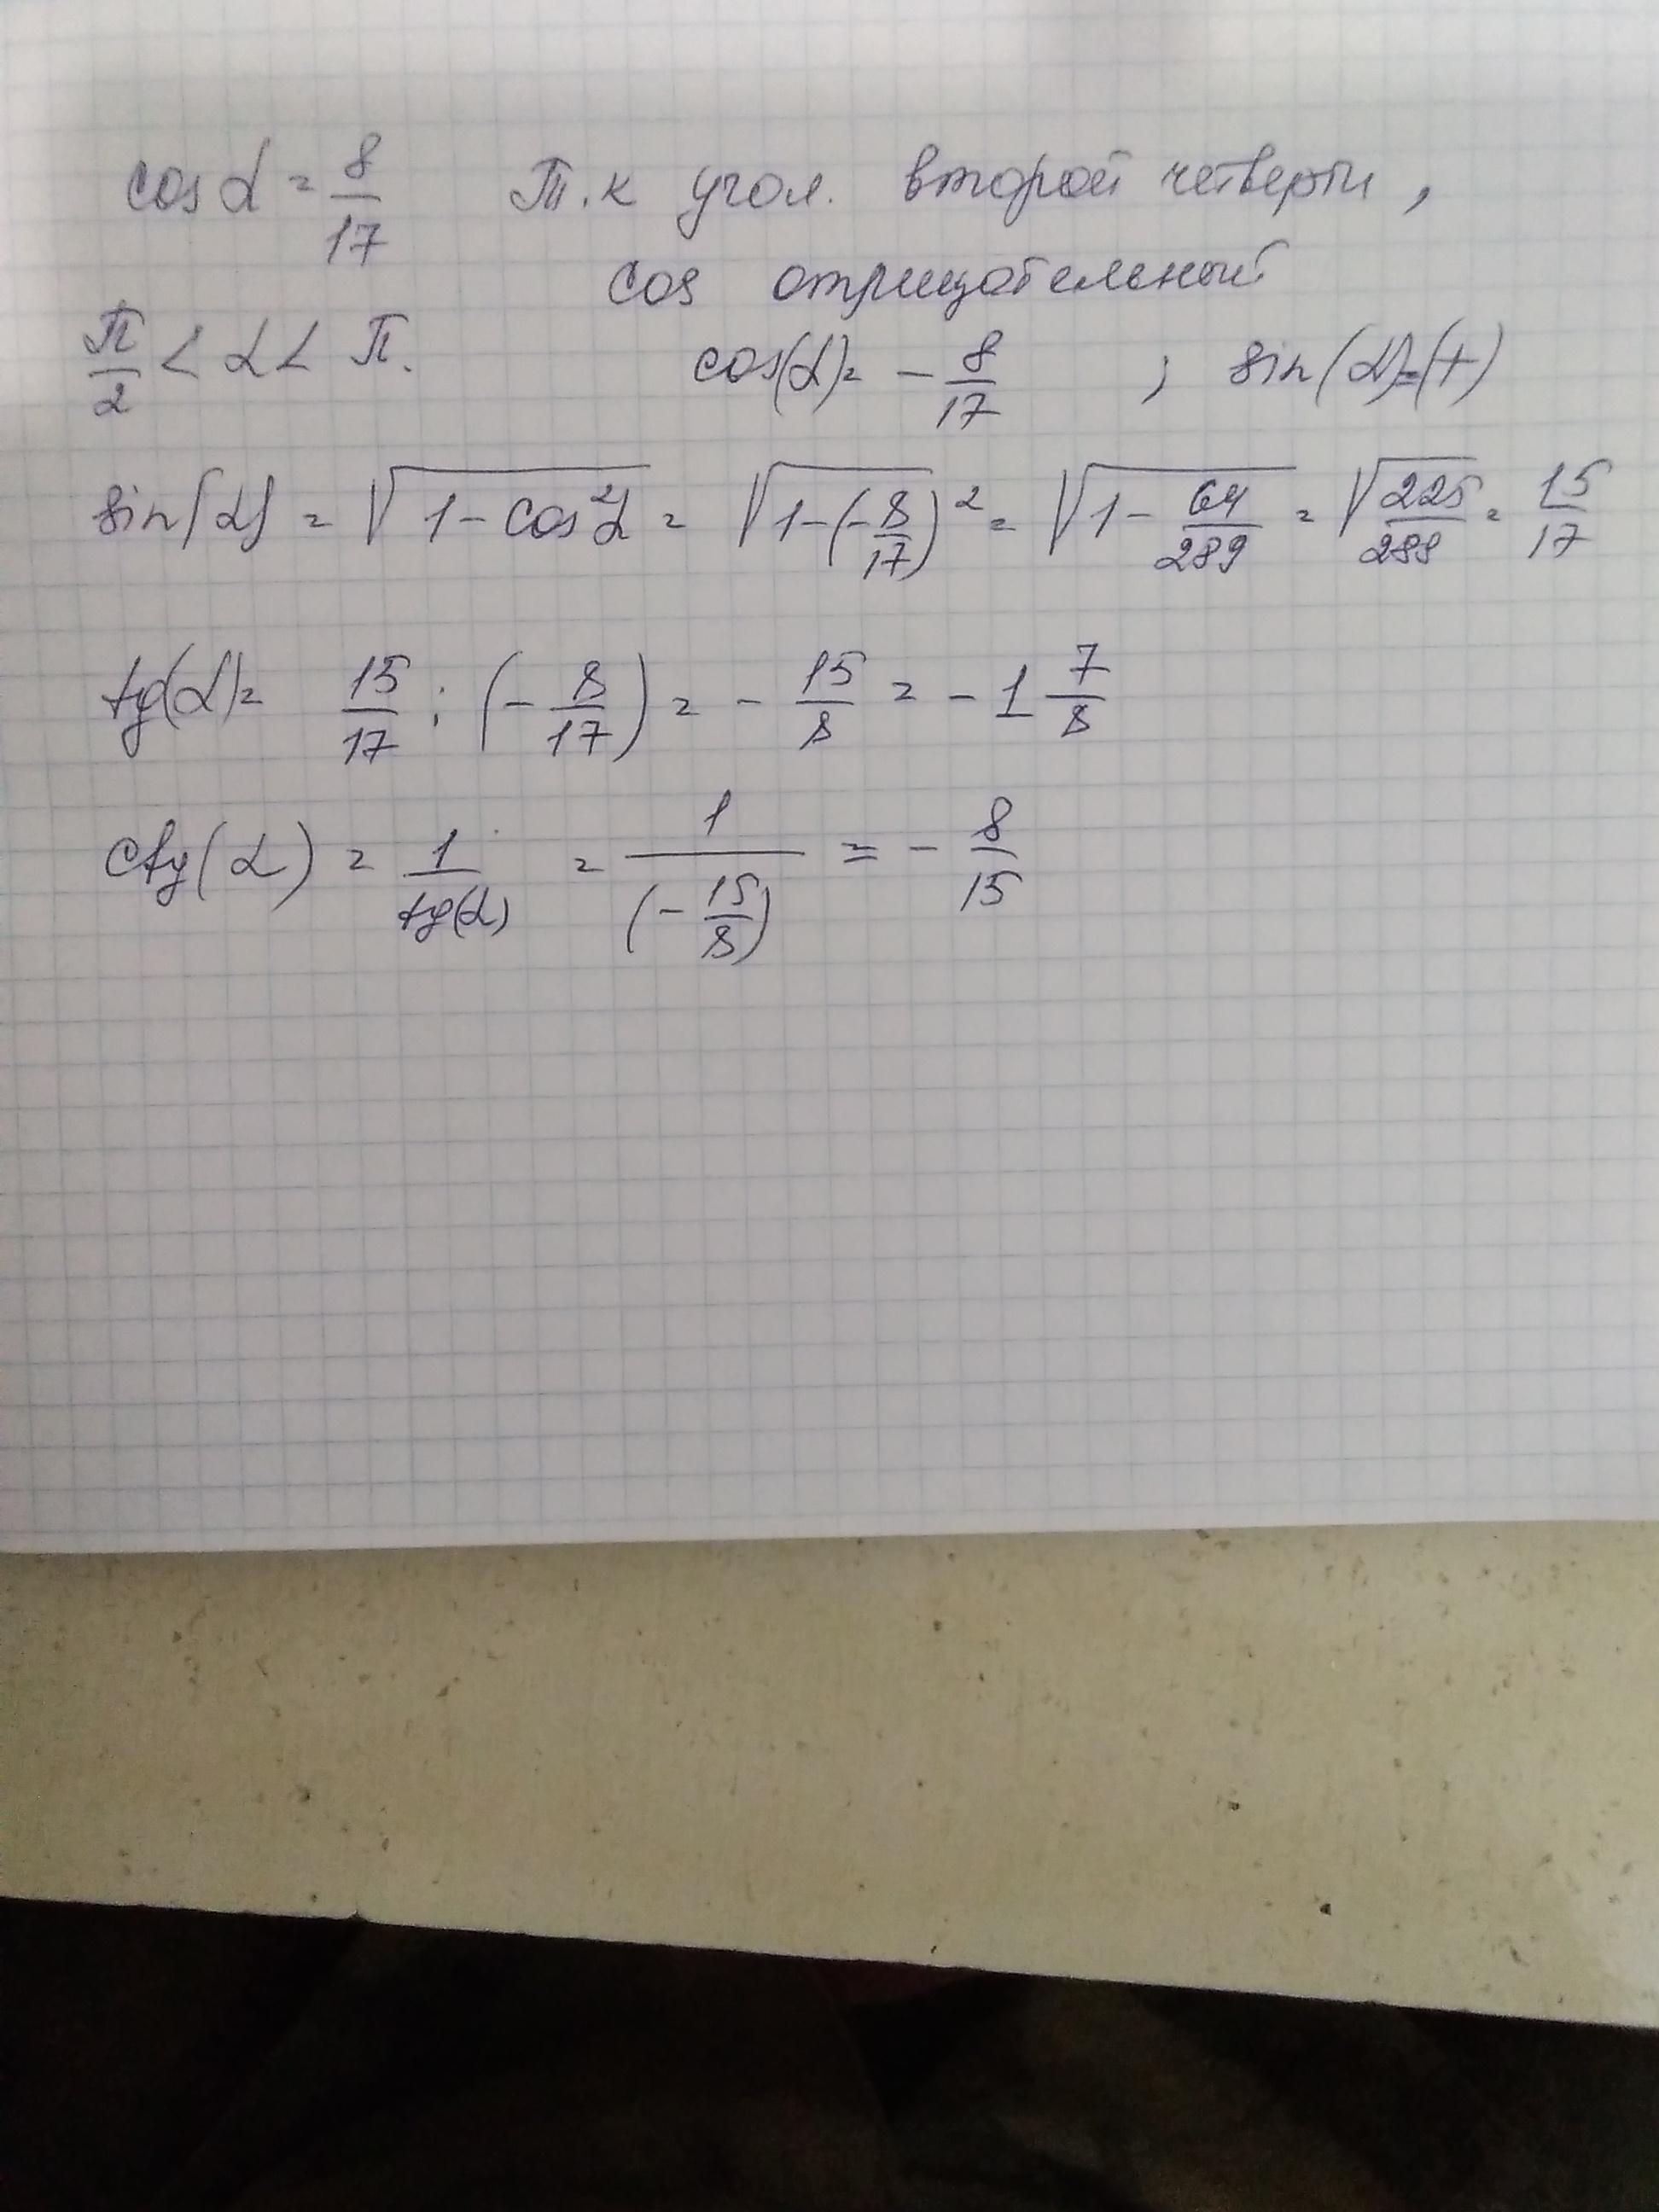 cos α = 8/17 Т.к угол. второй четверти,
cos отрицательный
π/2 < α < π. cos(α) = - 8/17 ; sin(α)=(+)
sin(α) = √(1 - cos²α) = √(1-(-8/17)²) = √(1 - 64/289) = √(225/289) = 15/17
tg(α) = 15/17 : (- 8/17) = - 15/8 = - 1 7/8
ctg(α) = 1/tg(α) = 1/(- 15/8) = - 8/15